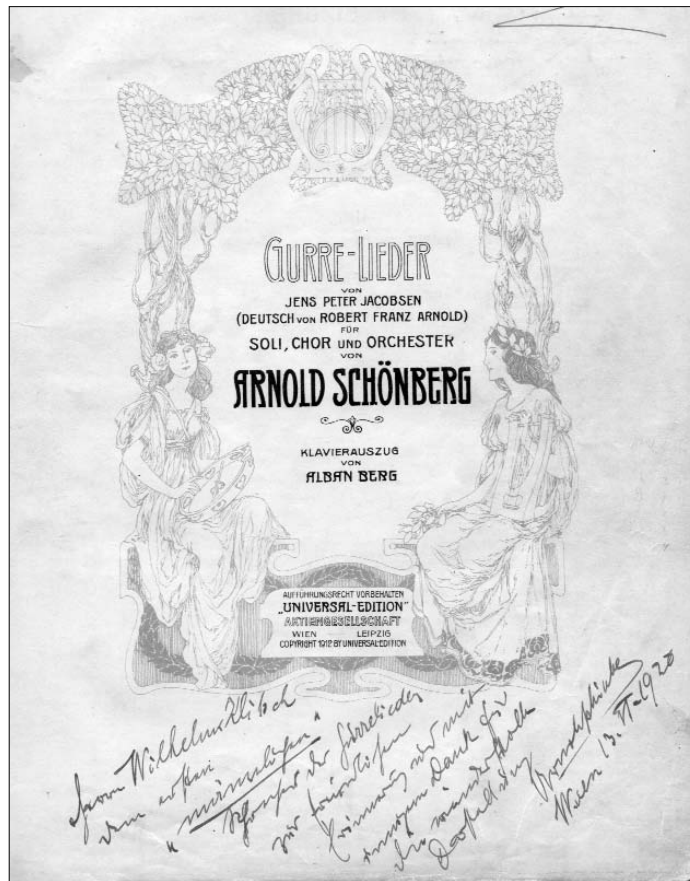 GURRE-LIEDER
VON
JENS PETER JACOBSEN
(DEUTSCH VON ROBERT FRANZ ARNOLD)
FÜR
SOLI, CHOR UND ORCHESTER
VON
ARNOLD SCHÖNBERG
KLAVIERAUSZUG
VON
ALBAN BERG
AUFFÜHRUNGSRECHT VORBEHALTEN
„UNIVERSAL-EDITION”
AKTIENGESELLSCHAFT
WIEN LEIPZIG
COPYRIGHT 1912 BY UNIVERSAL-EDITION
Herrn Wilhelm Klitsch
dem ersten
„männlichen”
Sprecher der Gurrelieder
zur freundlichen
Erinnerung und mit
innigem Dank für
die
Darstellung
Wien 13. VI. 1920